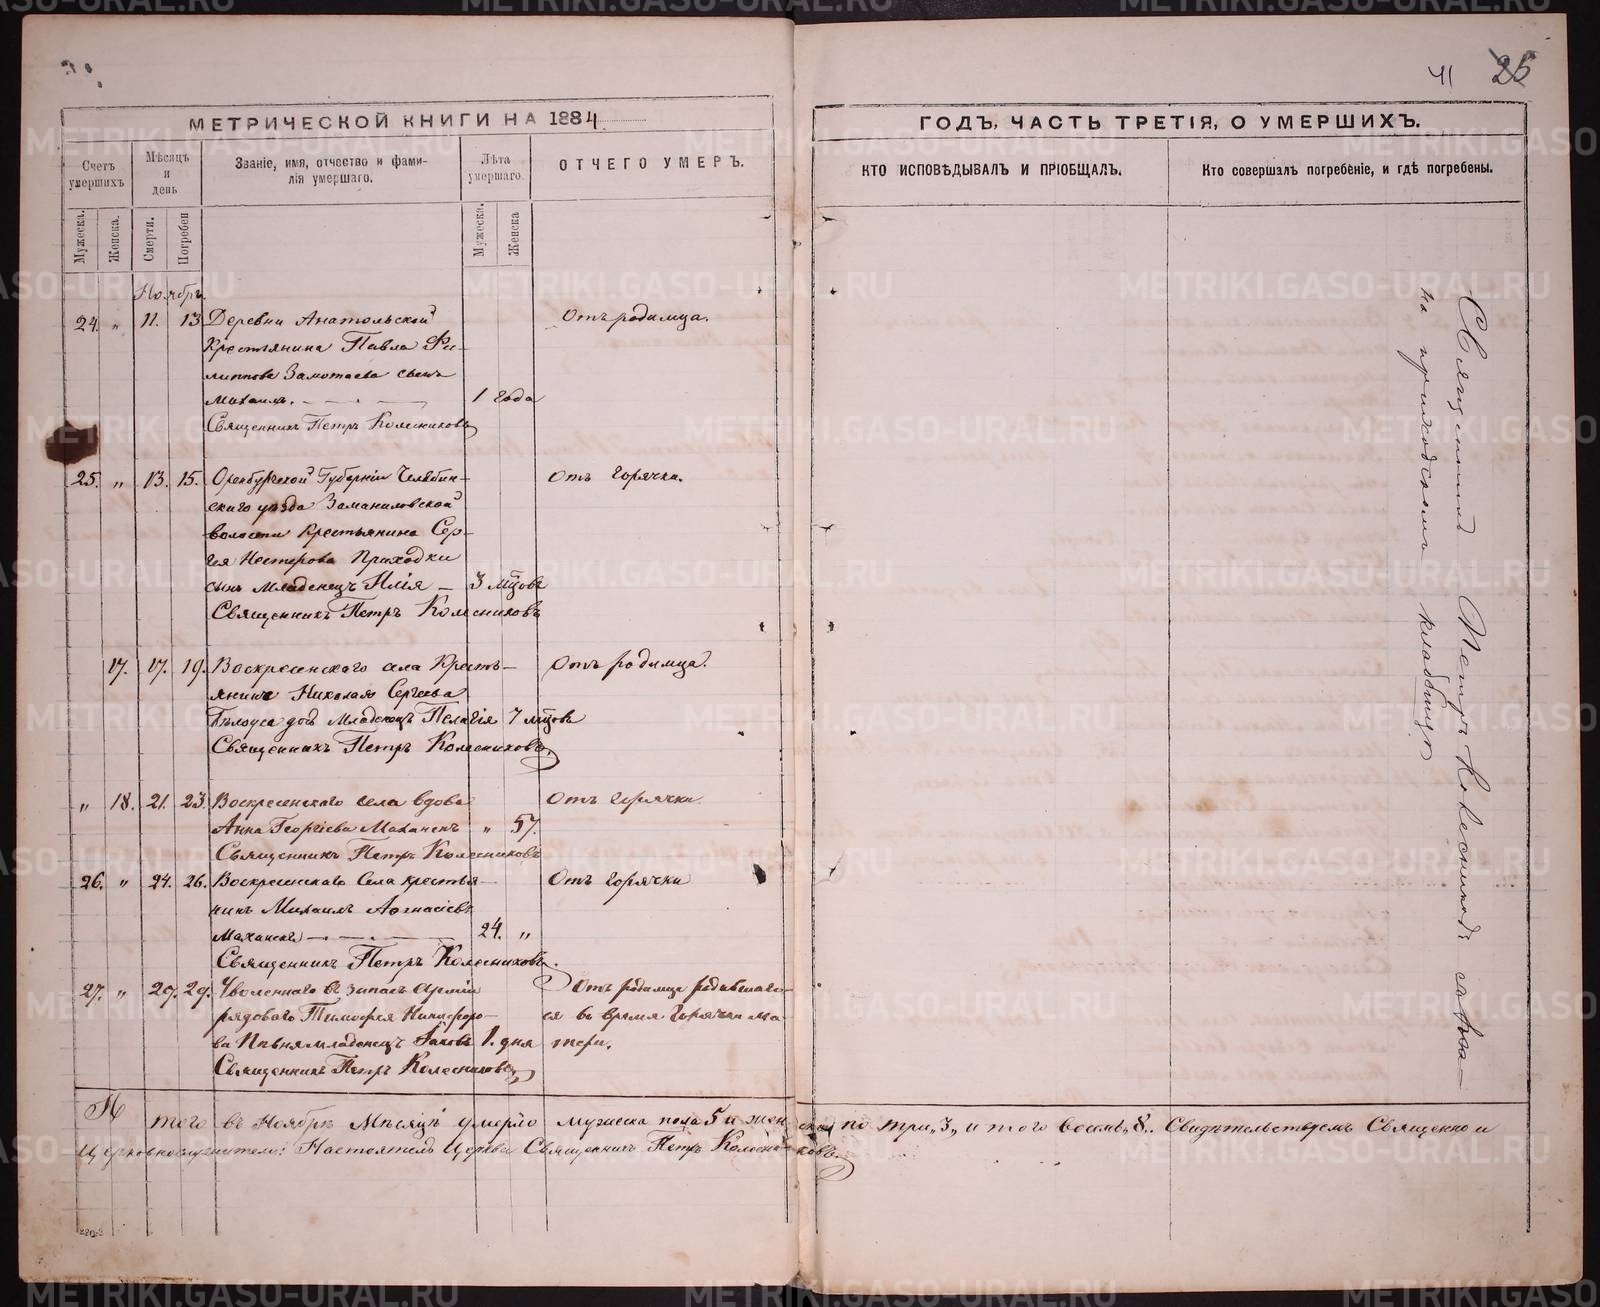 41 25
МЕТРИЧЕСКОЙ КНИГИ НА 1884
ГОДЪ, ЧАСТЬ ТРЕТІЯ, О УМЕРШИХЪ.
Счетъ умершихъ
Мѣсяцъ и день
Званіе, имя, отчество и фами-
лія умершаго.
Лѣта умершаго.
ОТЧЕГО УМЕРЪ.
КТО ИСПОВѢДЫВАЛЪ И ПРІОБЩАЛЪ.
Кто совершалъ погребеніе, и гдѣ погребены.
Мужеска. Женска. Смерти. Погребен Мужеска. Женска
Ноябрь
24. „ 11. 13 Деревни Анатольской Отъ родимца.
Крестьянина Павла Фи-
липпова Замотаева сынъ
Михаилъ. 1 года
Священникъ Петръ Колесниковъ
25. „ 13. 15. Оренбургской Губерніи Челябин- Отъ горячки.
скаго уѣзда Заманиловской
волости Крестьянина Сер-
гея Нестерова Приходки
сынъ Младенецъ Илія 3 мѣцовъ
Священникъ Петръ Колесниковъ
17. 17. 19. Воскресенскаго села Кресть- Отъ родимца.
янина Николая Сергеева
Бѣлоуса дочь Младенецъ Пелагія 7 мѣцовъ
Священникъ Петръ Колесниковъ.
„ 18. 21. 23. Воскресенскаго села вдова Отъ горячки.
Анна Георгіева Маханекъ „ 57.
Священникъ Петръ Колесниковъ
26. „ 24. 26. Воскресенскаго Села крестья- Отъ горячки
нинъ Михаилъ Афанасіевъ
24. „
Священникъ Петръ Колесниковъ.
27. „ 29. 29. Уволеннаго въ запасъ Арміи Отъ родимца родившаго-
рядоваго Тимофея Никифоро- ся въ время Горячки ма-
ва младенецъ Іаковъ 1. дня тери.
Священникъ Петръ Колесниковъ
Священникъ Петръ Колесниковъ
на приходскомъ кладбищѣ
Итого въ Ноябрѣ Мѣсяцѣ умерло мужеска пола 5 и женска по три „3„ итого восемь „8„. Свидѣтельствуемъ Священно и
Церковнослужители: Настоятель Церкви Священникъ Петръ Колесниковъ.
METRIKI.GASO-URAL.RU